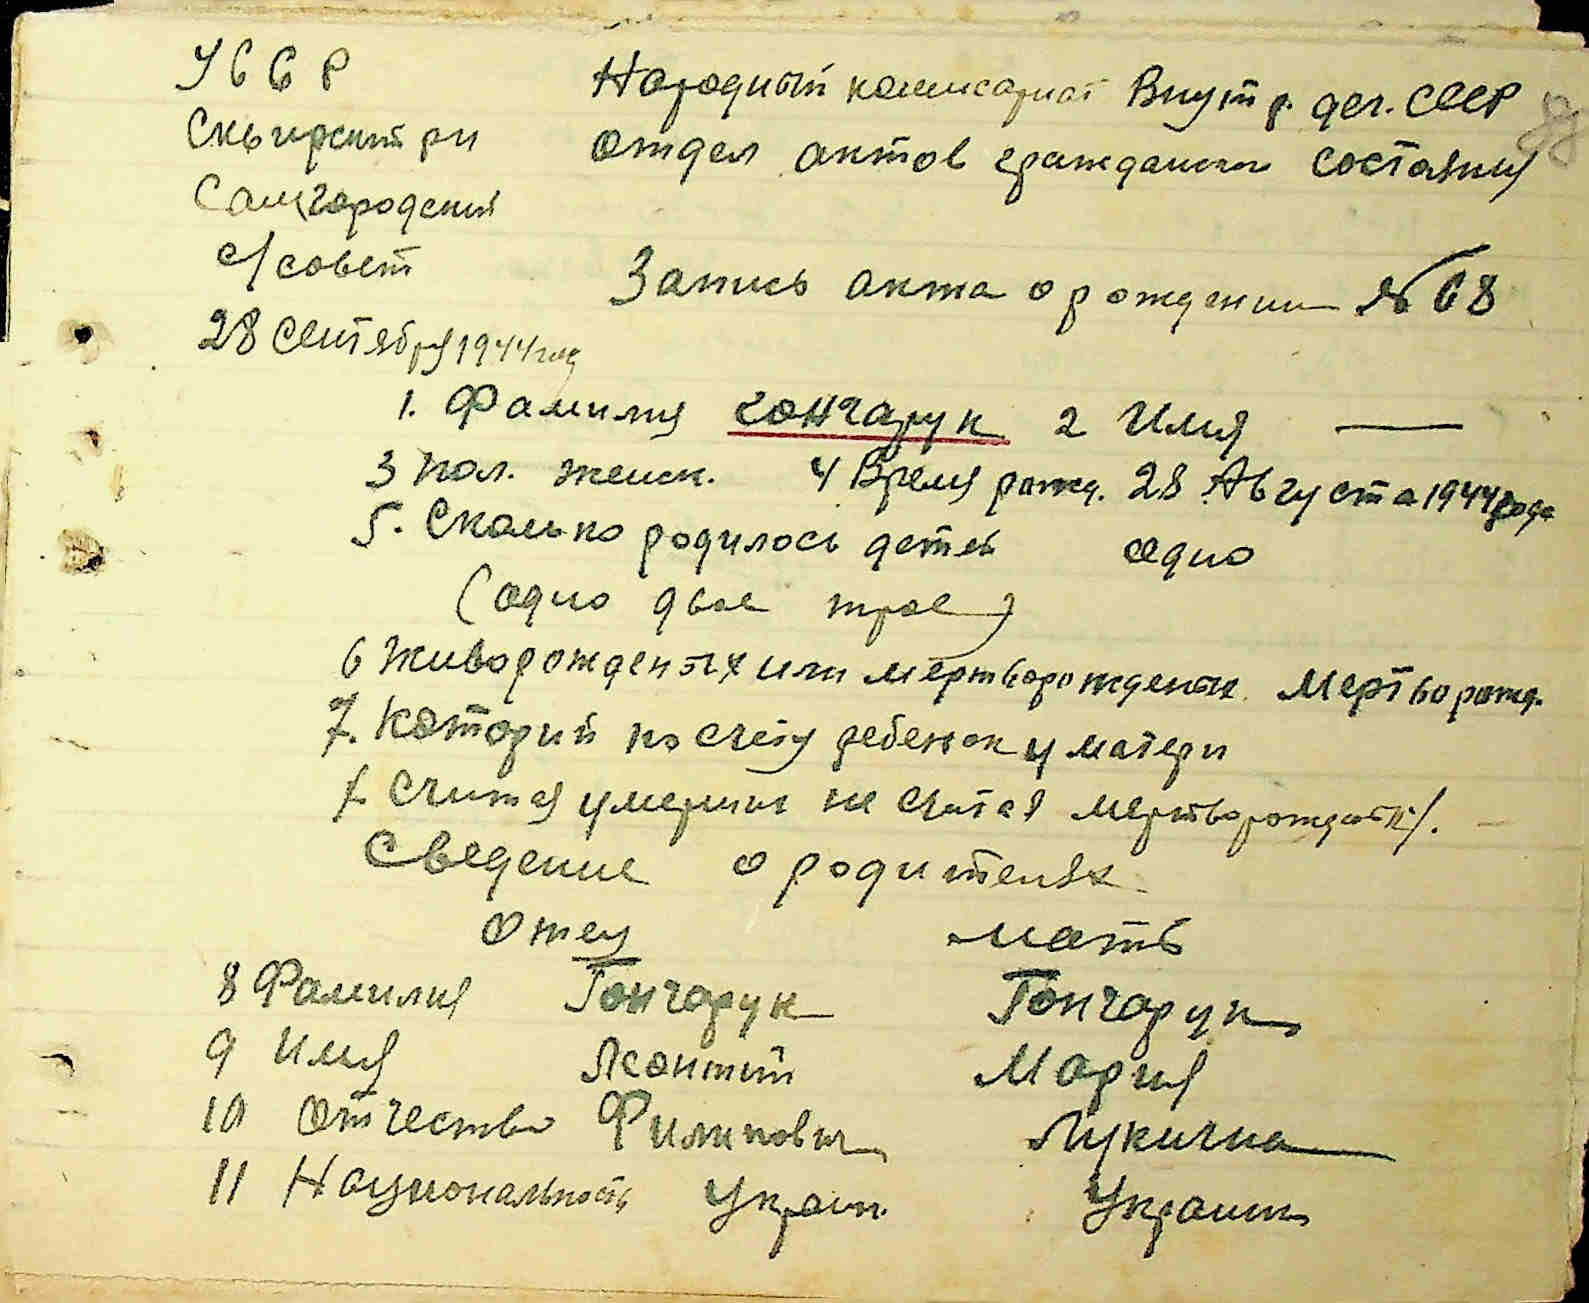 УССР
Народный комисариат Внутр. дел. СССР
Сквирский р-н
Отдел актов гражданского состояния
Самгородский
с/совет
Запись акта о рождении № 68
28 Сентября 1944 год
1. Фамилия Гончарук 2 Имя —
3 Пол. женск. 4 Время рожд. 28 Августа 1944 года
5. Сколько родилось детей одно
(одно двое трое)
6 Живорожденых или мертворожденых Мертворожд.
7. Который по счету ребенок у матери
/ Считая умерших не считая мертворожденых/. –
Сведение о родителях
Отец мать
8 Фамилия Гончарук Гончарук
9 Имя Леонтий Мария
10 Отчество Филипович Лукична
11 Национальность Украин. Украинк